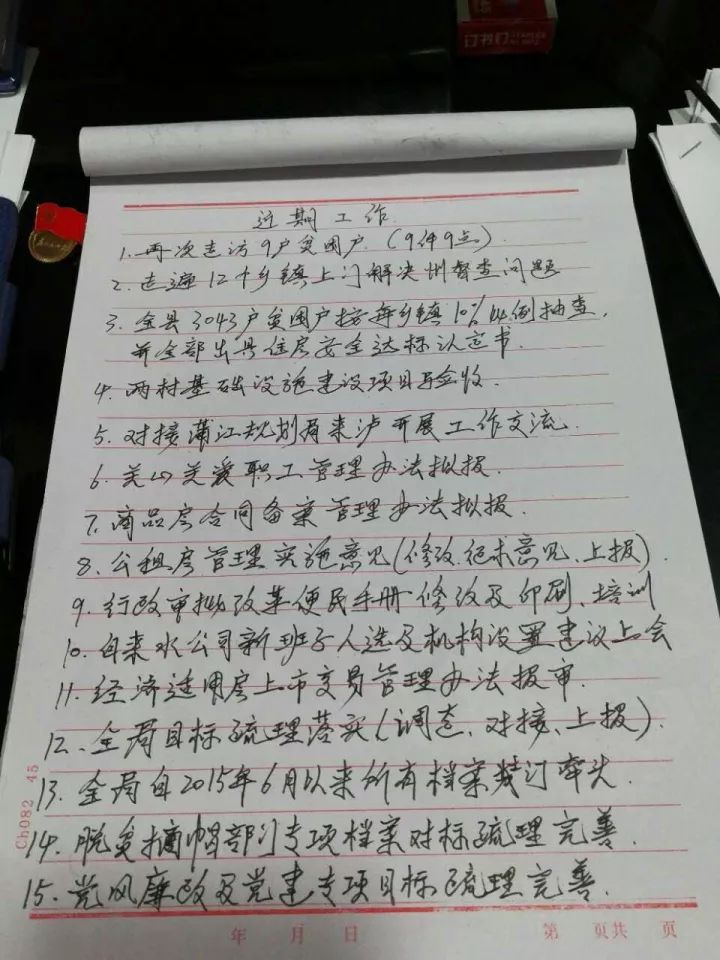 订书钉
近期工作
1. 再次走访9户贫困户(9件9点)
2. 走遍12个乡镇上门解决州督查问题
3. 全县3043户贫困户按每乡镇10%比例抽查,
并全部出具住房安全达标认定书.
4. 两村基础设施建设项目验收.
5. 对接蒲江规划局来泸开展工作交流.
6. 关心关爱职工管理办法拟报.
7. 商品房合同备案管理办法拟报.
8. 公租房管理实施意见(修改.征求意见、上报).
9. 行政审批改革便民手册修改及印刷、培训
10. 自来水公司新班子人选及机构设置建议上会
11. 经济适用房上市交易管理办法报审.
12. 全局目标疏理落实(调查、对接、上报).
13. 全局自2015年6月以来所有档案装订牵头.
14. 脱贫摘帽部门专项档案对标疏理完善.
15. 党风廉政及党建专项目标疏理完善.
Ch082 45
年 月 日 第 页共 页